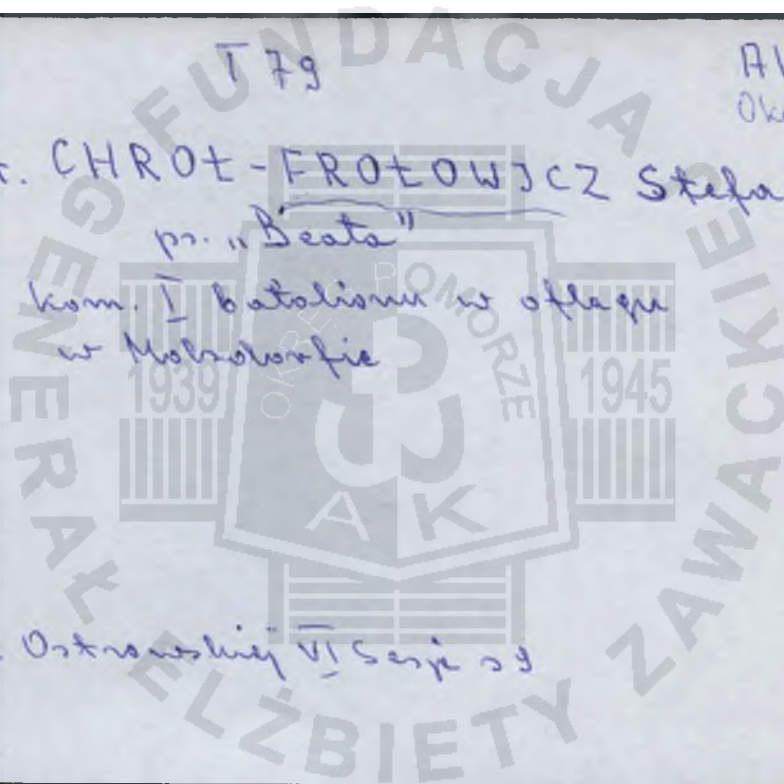 T 79
CHROŁ-FROŁOWICZ Stefa
ps. „Beata”
kom. I batalionu w oflagu
w Molsdorfie
Ostrowskiej VI Sesja s 9
FUNDACJA GENERAŁ ELŻBIETY ZAWACKIEJ
OKRĘG POMORZE
1939 1945
AK